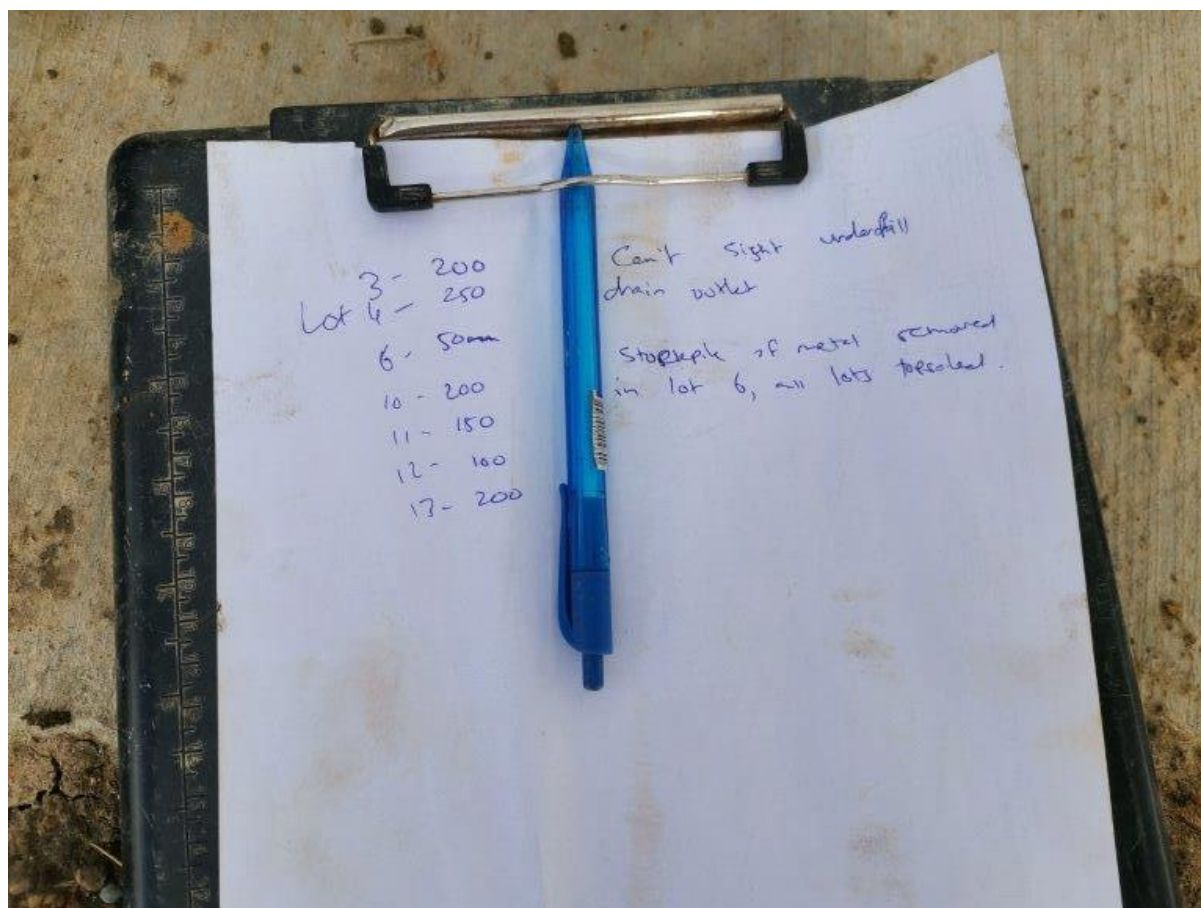 3 - 200
Lot 4 - 250
6 - 50mm
10 - 200
11 - 150
12 - 100
13 - 200
Can't sight underfill
drain outlet
of metal removed
in lot 6, all lots topsoiled.